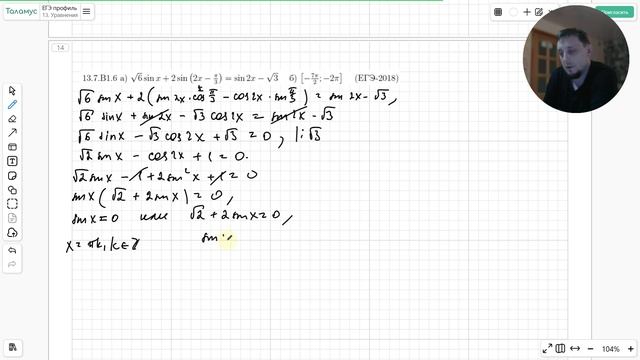 Таламус
ЕГЭ профиль
13. Уравнения
Пригласить
14
13.7.B1.6 а) √6 sin x + 2 sin (2x − π/3) = sin 2x − √3   б) [−7π/2; −2π]   (ЕГЭ-2018)
√6 sin x + 2 (sin 2x · cos π/3 − cos 2x · sin π/3) = sin 2x − √3,
√6 sin x + sin 2x − √3 cos 2x = sin 2x − √3
√6 sin x − √3 cos 2x + √3 = 0, |: √3
√2 sin x − cos 2x + 1 = 0.
√2 sin x − 1 + 2 sin² x + 1 = 0
sin x (√2 + 2 sin x) = 0,
sin x = 0 или √2 + 2 sin x = 0,
x = πk, k ∈ ℤ
sin
104%